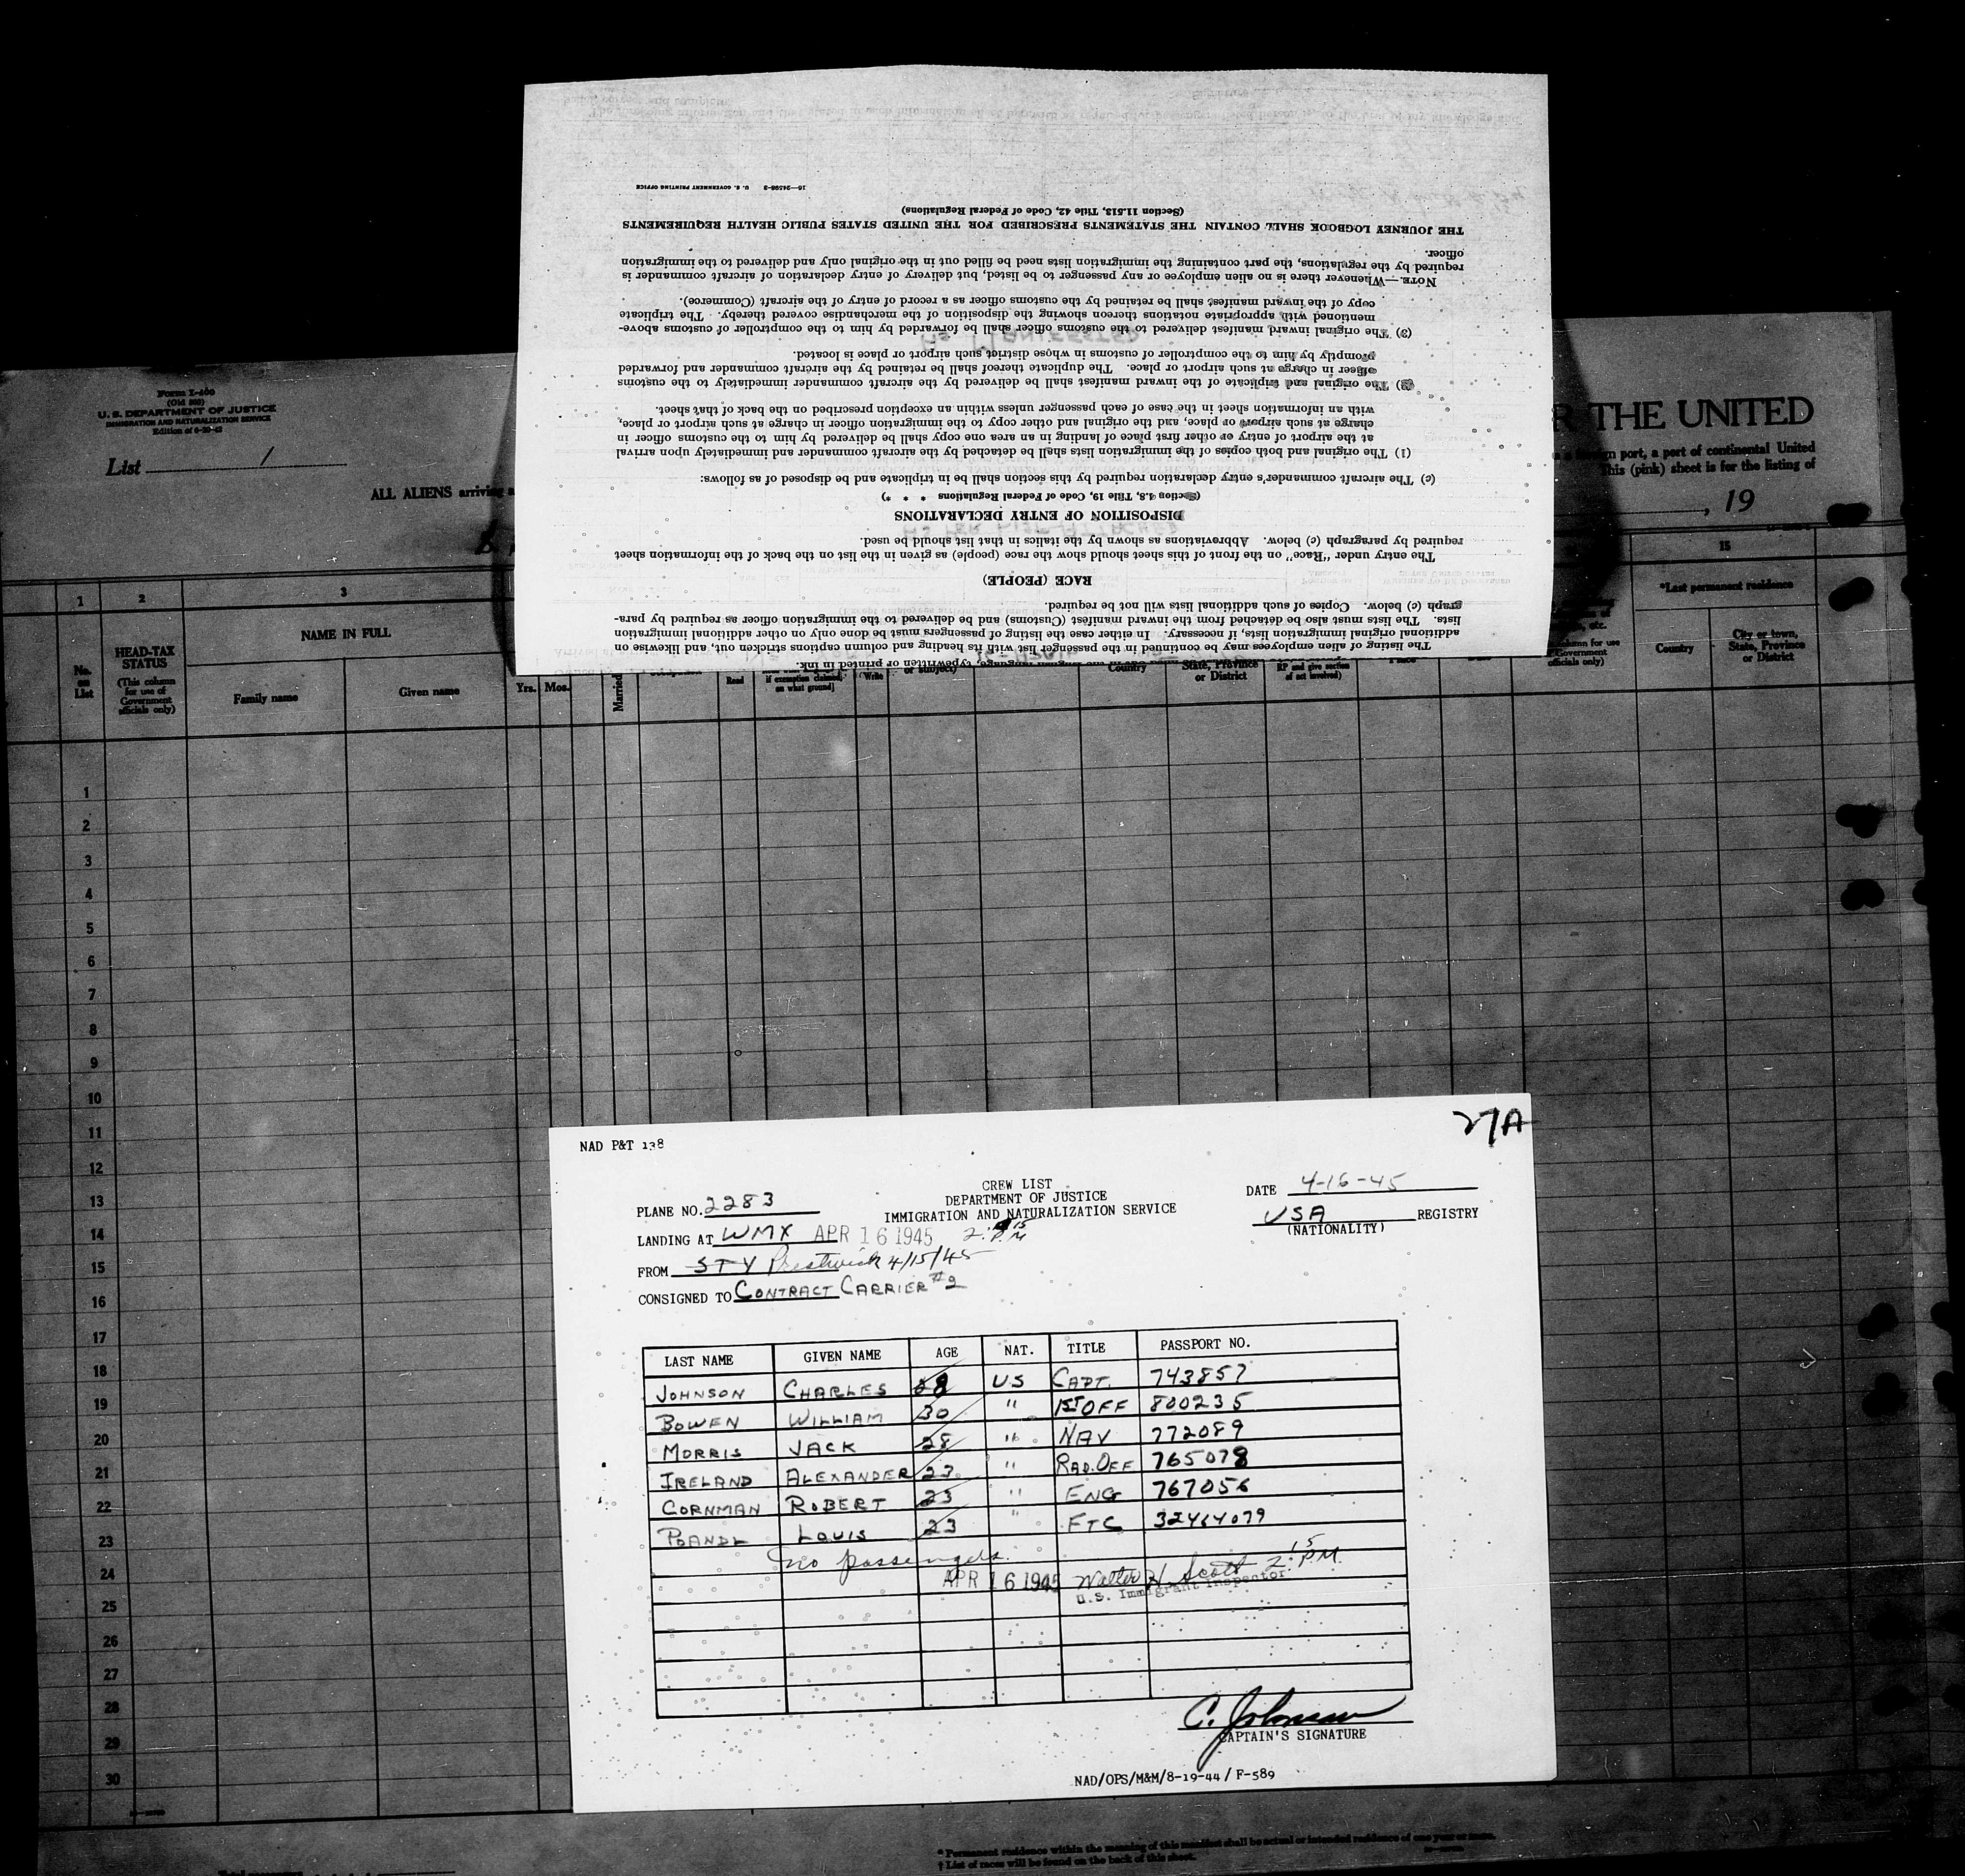 16—24598-3 U. S. GOVERNMENT PRINTING OFFICE
(Section 11.513, Title 42, Code of Federal Regulations)
THE JOURNEY LOGBOOK SHALL CONTAIN THE STATEMENTS PRESCRIBED FOR THE UNITED STATES PUBLIC HEALTH REQUIREMENTS
officer.
required by the regulations, the part containing the immigration lists need be filled out in the original only and delivered to the immigration
NOTE.—Whenever there is no alien employee or any passenger to be listed, but delivery of entry declaration of aircraft commander is
copy of the inward manifest shall be retained by the customs officer as a record of entry of the aircraft (Commerce).
mentioned with appropriate notations thereon showing the disposition of the merchandise covered thereby. The triplicate
(3) The original inward manifest delivered to the customs officer shall be forwarded by him to the comptroller of customs above-
promptly by him to the comptroller of customs in whose district such airport or place is located.
officer in charge at such airport or place. The duplicate thereof shall be retained by the aircraft commander and forwarded
(2) The original and triplicate of the inward manifest shall be delivered by the aircraft commander immediately to the customs
with an information sheet in the case of each passenger unless within an exception prescribed on the back of that sheet.
charge at such airport or place, and the original and other copy to the immigration officer in charge at such airport or place,
at the airport of entry or other first place of landing in an area one copy shall be delivered by him to the customs officer in
(1) The original and both copies of the immigration lists shall be detached by the aircraft commander and immediately upon arrival
(c) The aircraft commander's entry declaration required by this section shall be in triplicate and disposed of as follows:
(Section 4.8, Title 19, Code of Federal Regulations * * *)
DISPOSITION OF ENTRY DECLARATIONS
required by paragraph (c) below. Abbreviations as shown by the italics in that list should be used.
The entry under "Race" on the front of this sheet should show the race (people) as given in the list on the back of the information sheet
RACE (PEOPLE)
graph (c) below. Copies of such additional lists will not be required.
lists. The lists must also be detached from the inward manifest (Customs) and be delivered to the immigration officer as required by para-
additional original immigration lists, if necessary. In either case the listing of passengers must be done only on other additional immigration
The listing of alien employees may be continued in the passenger list with its heading and column captions stricken out, and likewise on
typewritten or printed in ink.
Form I-400
(Old 500)
U. S. DEPARTMENT OF JUSTICE
IMMIGRATION AND NATURALIZATION SERVICE
List 1
ALL ALIENS arriving
R THE UNITED
foreign port, a part of continental United
This (pink) sheet is for the listing of
, 19
1 2 3 15
No. on List
HEAD-TAX STATUS
(This column for use of Government officials only)
NAME IN FULL
Family name
Given name
Yrs. Mos.
Married
Read
if exemption claimed, on what ground]
Write
or subject)
Country
State, Province or District
RP and give section of act involved)
*Last permanent residence
Country
City or town, State, Province or District
1
2
3
4
5
6
7
8
9
10
11
12
13
14
15
16
17
18
19
20
21
22
23
24
25
26
27
28
29
30
NAD P&T 138
27A
CREW LIST
DEPARTMENT OF JUSTICE
IMMIGRATION AND NATURALIZATION SERVICE
DATE 4-16-45
PLANE NO. 2283
USA REGISTRY
(NATIONALITY)
LANDING AT WMX APR 16 1945 2:15 P.M
FROM STY Prestwick 4/15/45
CONSIGNED TO CONTRACT CARRIER #2
LAST NAME GIVEN NAME AGE NAT. TITLE PASSPORT NO.
JOHNSON CHARLES 38 US CAPT. 743857
BOWEN WILLIAM 30 " 1ST OFF 800235
MORRIS JACK 28 " NAV 772089
IRELAND ALEXANDER 23 " RAD.OFF 765078
CORNMAN ROBERT 23 " ENG 767056
LOUIS 23 " FTC 32464079
no passengers.
APR 16 1945 Walter H Scott 2:15 P.M.
U.S. Immigrant Inspector
C. Johnson
CAPTAIN'S SIGNATURE
NAD/OPS/M&M/8-19-44 / F-589
* Permanent residence within the meaning of this manifest shall be actual or intended residence of one year or more.
† List of races will be found on the back of this sheet.